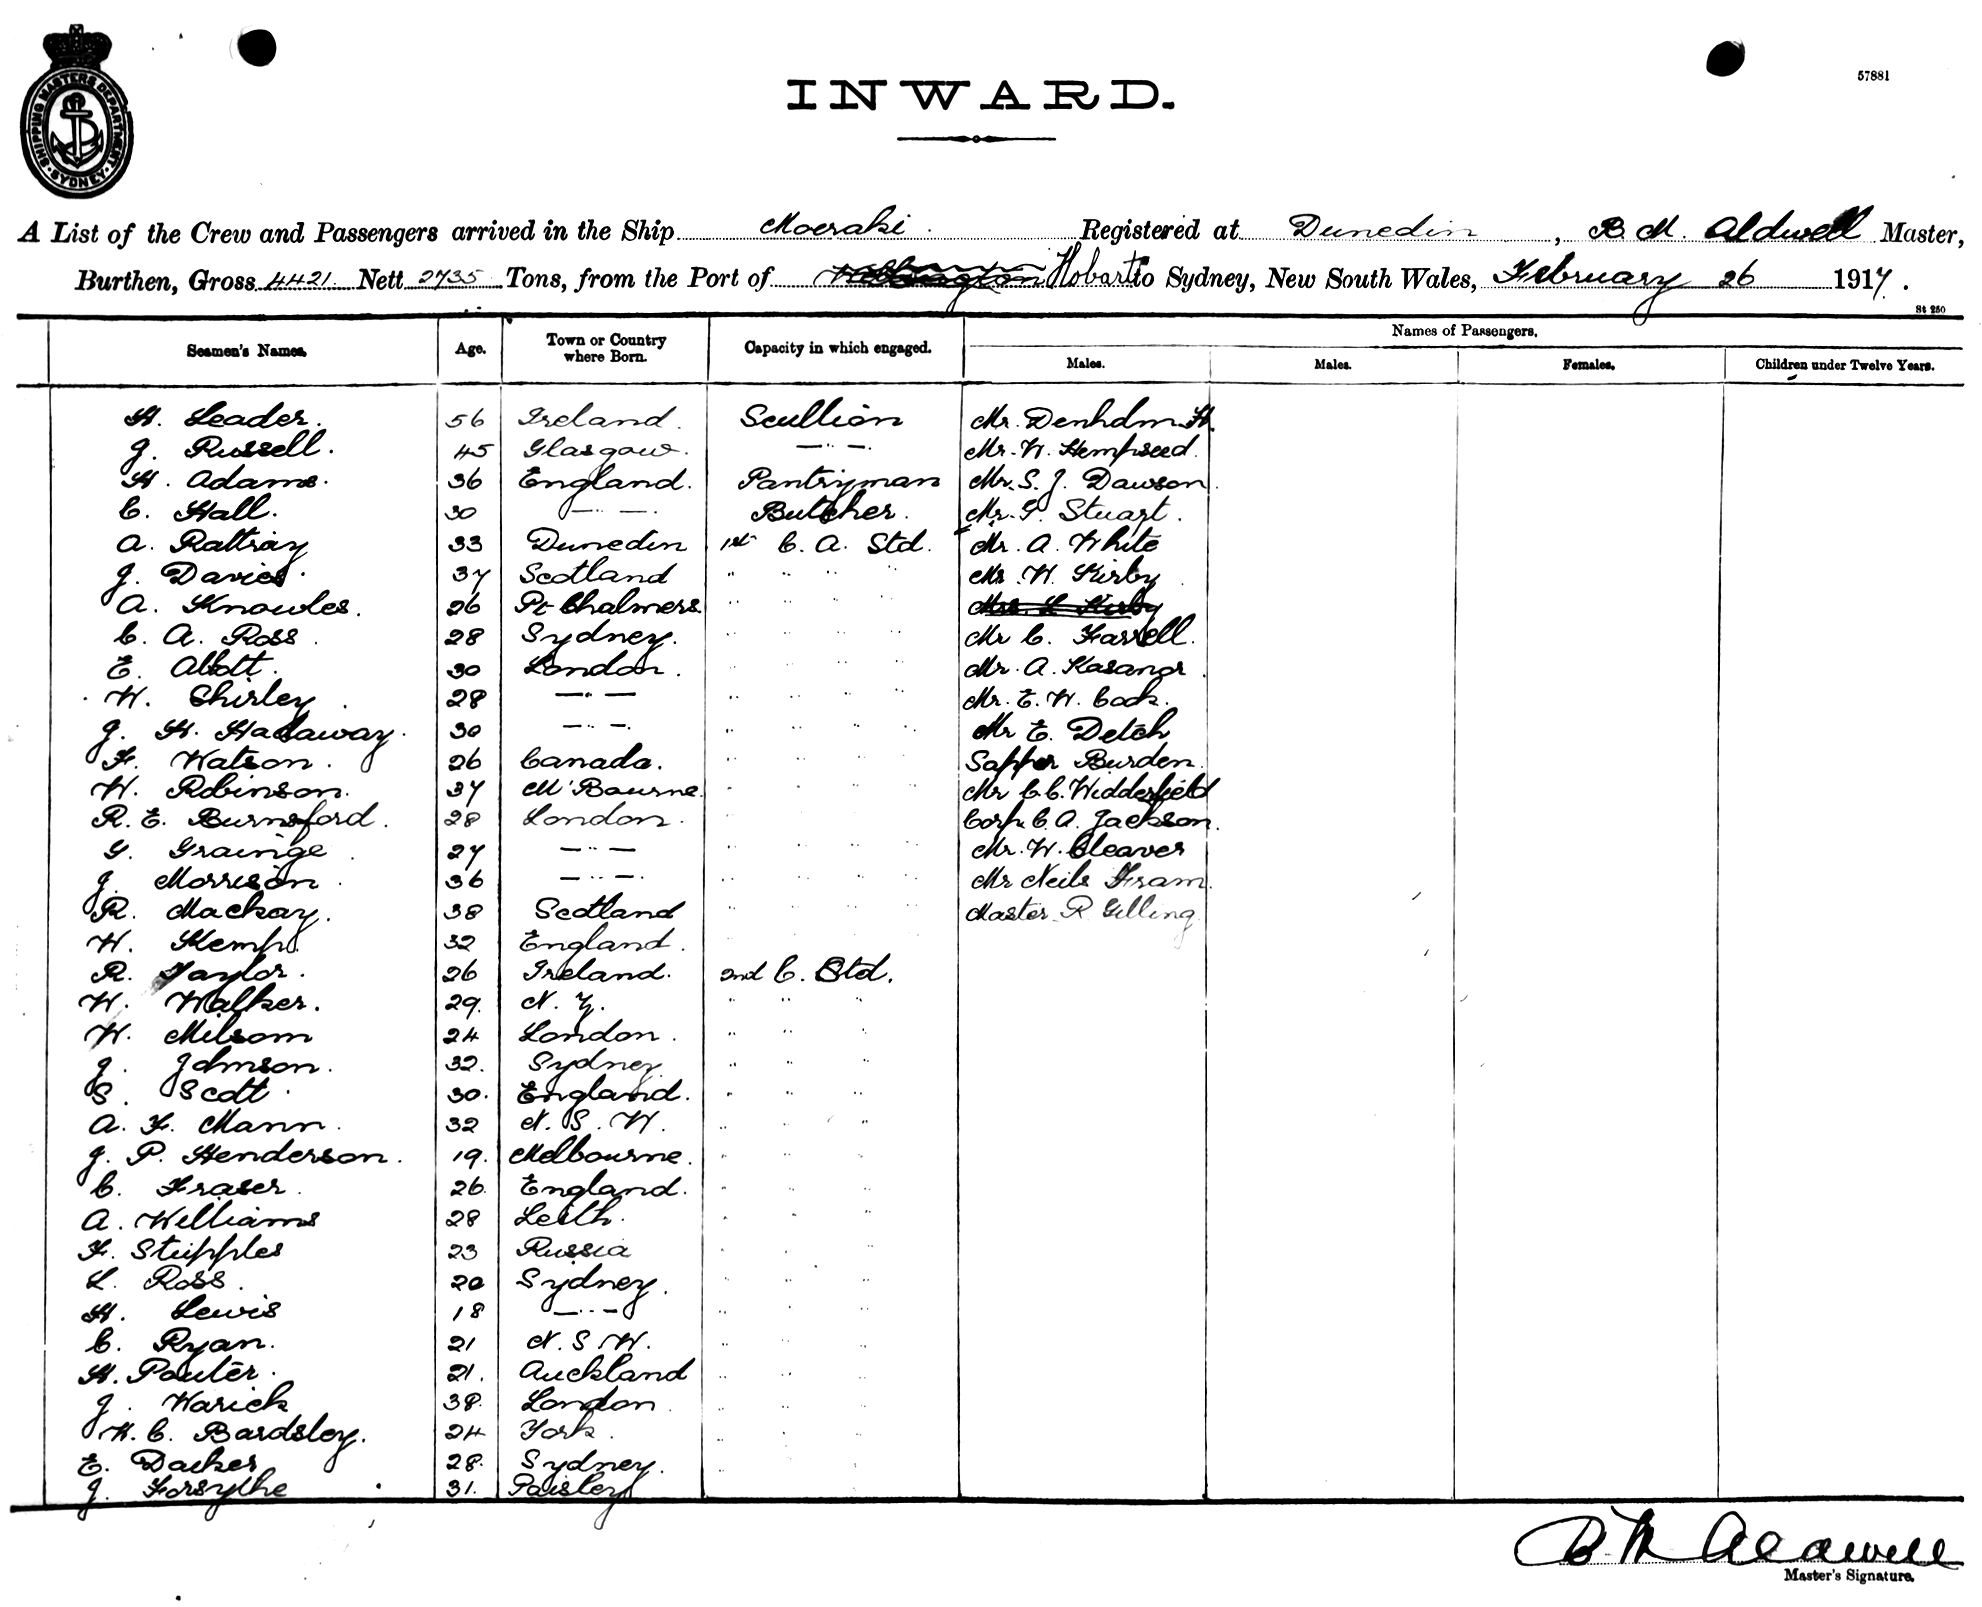 SHIPPING MASTERS DEPARTMENT SYDNEY
57881
INWARD.
A List of the Crew and Passengers arrived in the Ship Moeraki. Registered at Dunedin, B. M. Aldwell Master,
Burthen, Gross 4421. Nett 2735 Tons, from the Port of Wellington Hobart to Sydney, New South Wales, February 26 1917.
St 250
Seamen's Names. Age. Town or Country where Born. Capacity in which engaged. Names of Passengers.
Males. Males. Females. Children under Twelve Years.
H. Leader. 56 Ireland. Scullion Mr. Denholm H.
J. Russell. 45 Glasgow. —"— Mr. W. Hempseed.
H. Adams. 36 England. Pantryman Mr. S. J. Dawson.
C. Hall. 30 —"—. Butcher. Mr. G. Stuart.
A. Rattray 33 Dunedin 1st C. A. Std. Mr. A. White
J. Davies. 37 Scotland " " " " Mr. W. Kirby
A. Knowles. 26 Pt Chalmers " " " " Mrs. L. Kirby
C. A. Ross. 28 Sydney. " " " " Mr C. Farrell.
E. Abbott. 30 London. " " " " Mr. A.
W. Shirley. 28 —"— " " " " Mr. E. W. Cook.
J. H. Hadaway. 30 —"—. " " " " Mr E. Detch
F. Watson. 26 Canada. " " " " Sapper Burden.
W. Robinson. 37 M'Bourne. " " " " Mr C. C. Widderfield
R. E. Burnsford. 28 London. " " " " Corp. C. A. Jackson.
G. Grainge. 27 —"— " " " " Mr. W. Cleaver
J. Morrison. 36 —"—. " " " " Mr Neils Fram.
R. Mackay. 38 Scotland " " " " Master R Gilling
W. Kemp. 32 England. " " " "
R. Taylor. 26 Ireland. 2nd C. Std.
W. Walker. 29. N. Z. " " "
W. Milsom 24 London. " " "
J. Johnson. 32. Sydney. " " "
S. Scott. 30. England. " " "
A. F. Mann. 32 N. S. W. " " "
J. P. Henderson. 19. Melbourne. " " "
C. Fraser. 26. England. " " "
A. Williams 28 Leith. " " "
F. Stupples 23 Russia " " "
L. Ross. 20 Sydney. " " "
H. Lewis 18 —"— " " "
C. Ryan. 21 N. S W. " " "
H. Pauter. 21. Auckland " " "
J. Warick 38. London " " "
W. C. Bardsley. 24 York. " " "
E. Dacker 28. Sydney. " " "
J. Forsythe 31. Paisley
B M Aldwell
Master's Signature.